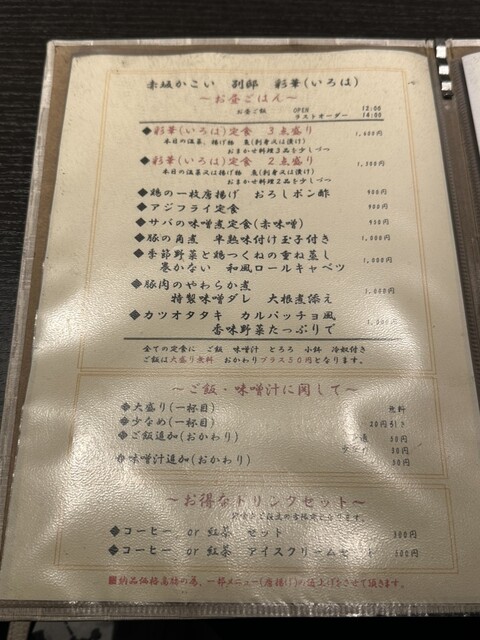 赤坂かこい 別邸 彩華(いろは)
～お昼ごはん～
お昼ご飯 OPEN 12:00
ラストオーダー 14:00
◆彩華(いろは)定食 3点盛り 1,600円
本日の温菜、揚げ物 魚(刺身又は漬け)
おまかせ料理3品を少しづつ
◆彩華(いろは)定食 2点盛り 1,300円
本日の温菜又は揚げ物 魚(刺身又は漬け)
おまかせ料理2品を少しづつ
◆鶏の一枚唐揚げ おろしポン酢 900円
◆アジフライ定食 900円
◆サバの味噌煮定食(赤味噌) 950円
◆豚の角煮 半熟味付け玉子付き 1,000円
◆季節野菜と鶏つくねの重ね蒸し
巻かない 和風ロールキャベツ 1,000円
◆豚肉のやわらか煮
特製味噌ダレ 大根煮添え 1,000円
◆カツオタタキ カルパッチョ風
香味野菜たっぷりで 1,000円
全ての定食に ご飯 味噌汁 とろろ 小鉢 冷奴付き
ご飯は大盛り無料 おかわりプラス50円となります。
～ご飯・味噌汁に関して～
◆大盛り(一杯目) 無料
◆少なめ(一杯目) 20円引き
◆ご飯追加(おかわり) 普通 50円
30円
◆味噌汁追加(おかわり) 50円
～お得なドリンクセット～
となります。
◆コーヒー or 紅茶 セット 300円
◆コーヒー or 紅茶 アイスクリームセット 500円
■納品価格高騰の為、一部メニュー(唐揚げ)の値上げをさせて頂きます。